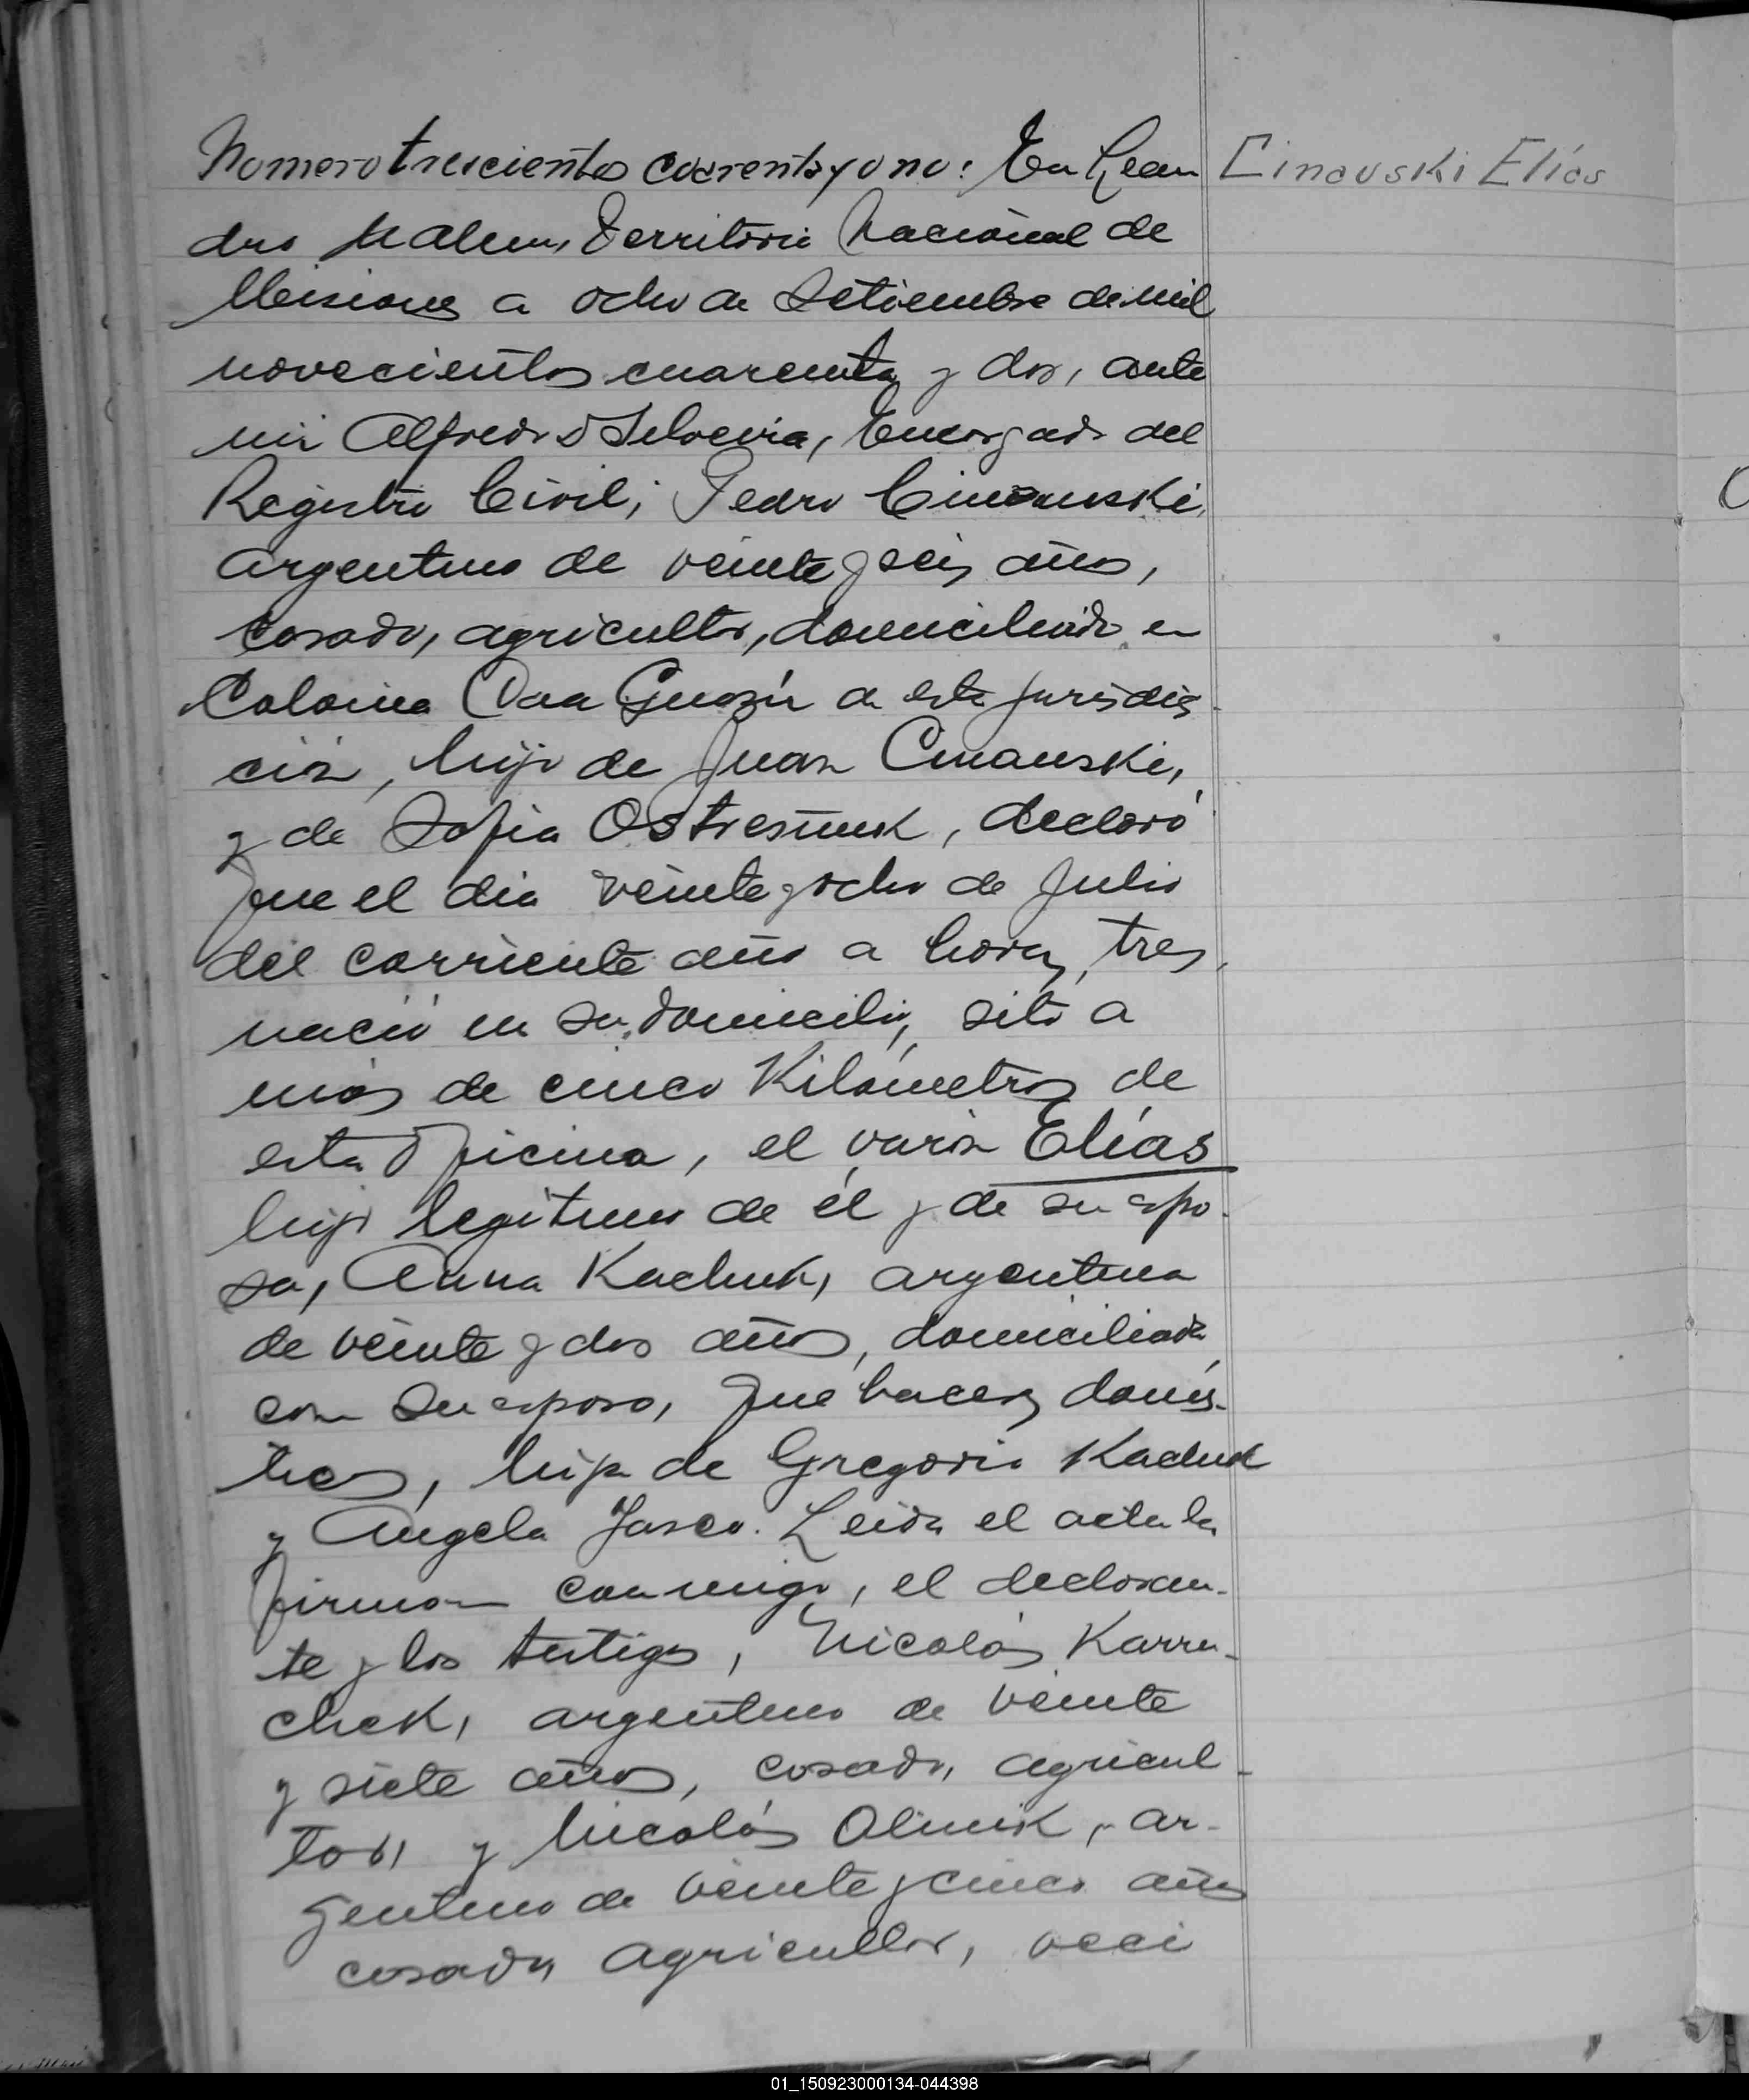 Nomero trescientos cuarenta y uno: En Lean
Cinauski Elías
dro N Alem, Territorio Nacional de
Misiones a ocho de Setiembre de mil
novecientos cuarenta y dos, ante
mi Alfredo D Silveira, Encargado del
Registro Civil; Pedro Cinauski,
argentino de veinte y seis años,
casado, agricultor, domiciliado en
Colonia Caa Guazú de esta jurisdic
ción, hijo de Juan Cinauski,
y de Sofia, declaró
que el dia veinte y ocho de Julio
del corriente año a horas tres,
nació en su domicilio, sito a
más de cinco Kilómetros de
esta Oficina, el varón Elías
hijo legitimo de él y de su espo-
sa, Anna Kachuk, argentina
de veinte y dos años, domiciliada
con su esposo, que haceres domés-
ticos, hija de Gregorio Kachuk
y Angela Jasco. Leida el acta la
firman conmigo, el declaran-
te y los testigos, Nicolás Karru-
chek, argentino de veinte
y siete años, casado, agricul-
tor, y Nicolás Olinik, ar-
gentino de veinte y cinco años
casado, agricultor, veci
01_150923000134-044398